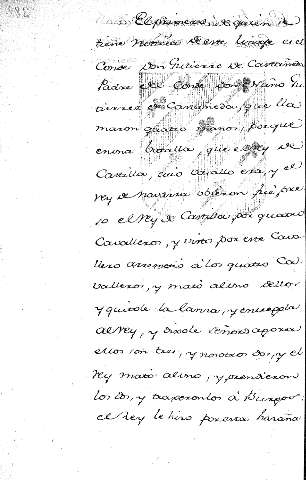 El primero de quien se
tiene noticia de este linage es el
Conde Don Gutierre de Castañeda
Padre del Conde Don Nuño Gu
tierrez de Castañeda, que lla
maron quatro manos, porque
en una batalla, que el Rey de
Castilla, cuio vasallo era, y el
Rey de Navarra obieron fue pre
so el Rey de Castilla, por quatro
Cavalleros, y visto por este Cava
llero arremetio à los quatro Ca
valleros, y mató al uno dellos
y quitole la lanza, y entregola
al Rey, y dixole señor agora
ellos son tres, y nosotros dos, y el
Rey mató al uno, y prendieron
los dos, y traxeronlos à Burgos
el Rey le hizo por esta hazaña